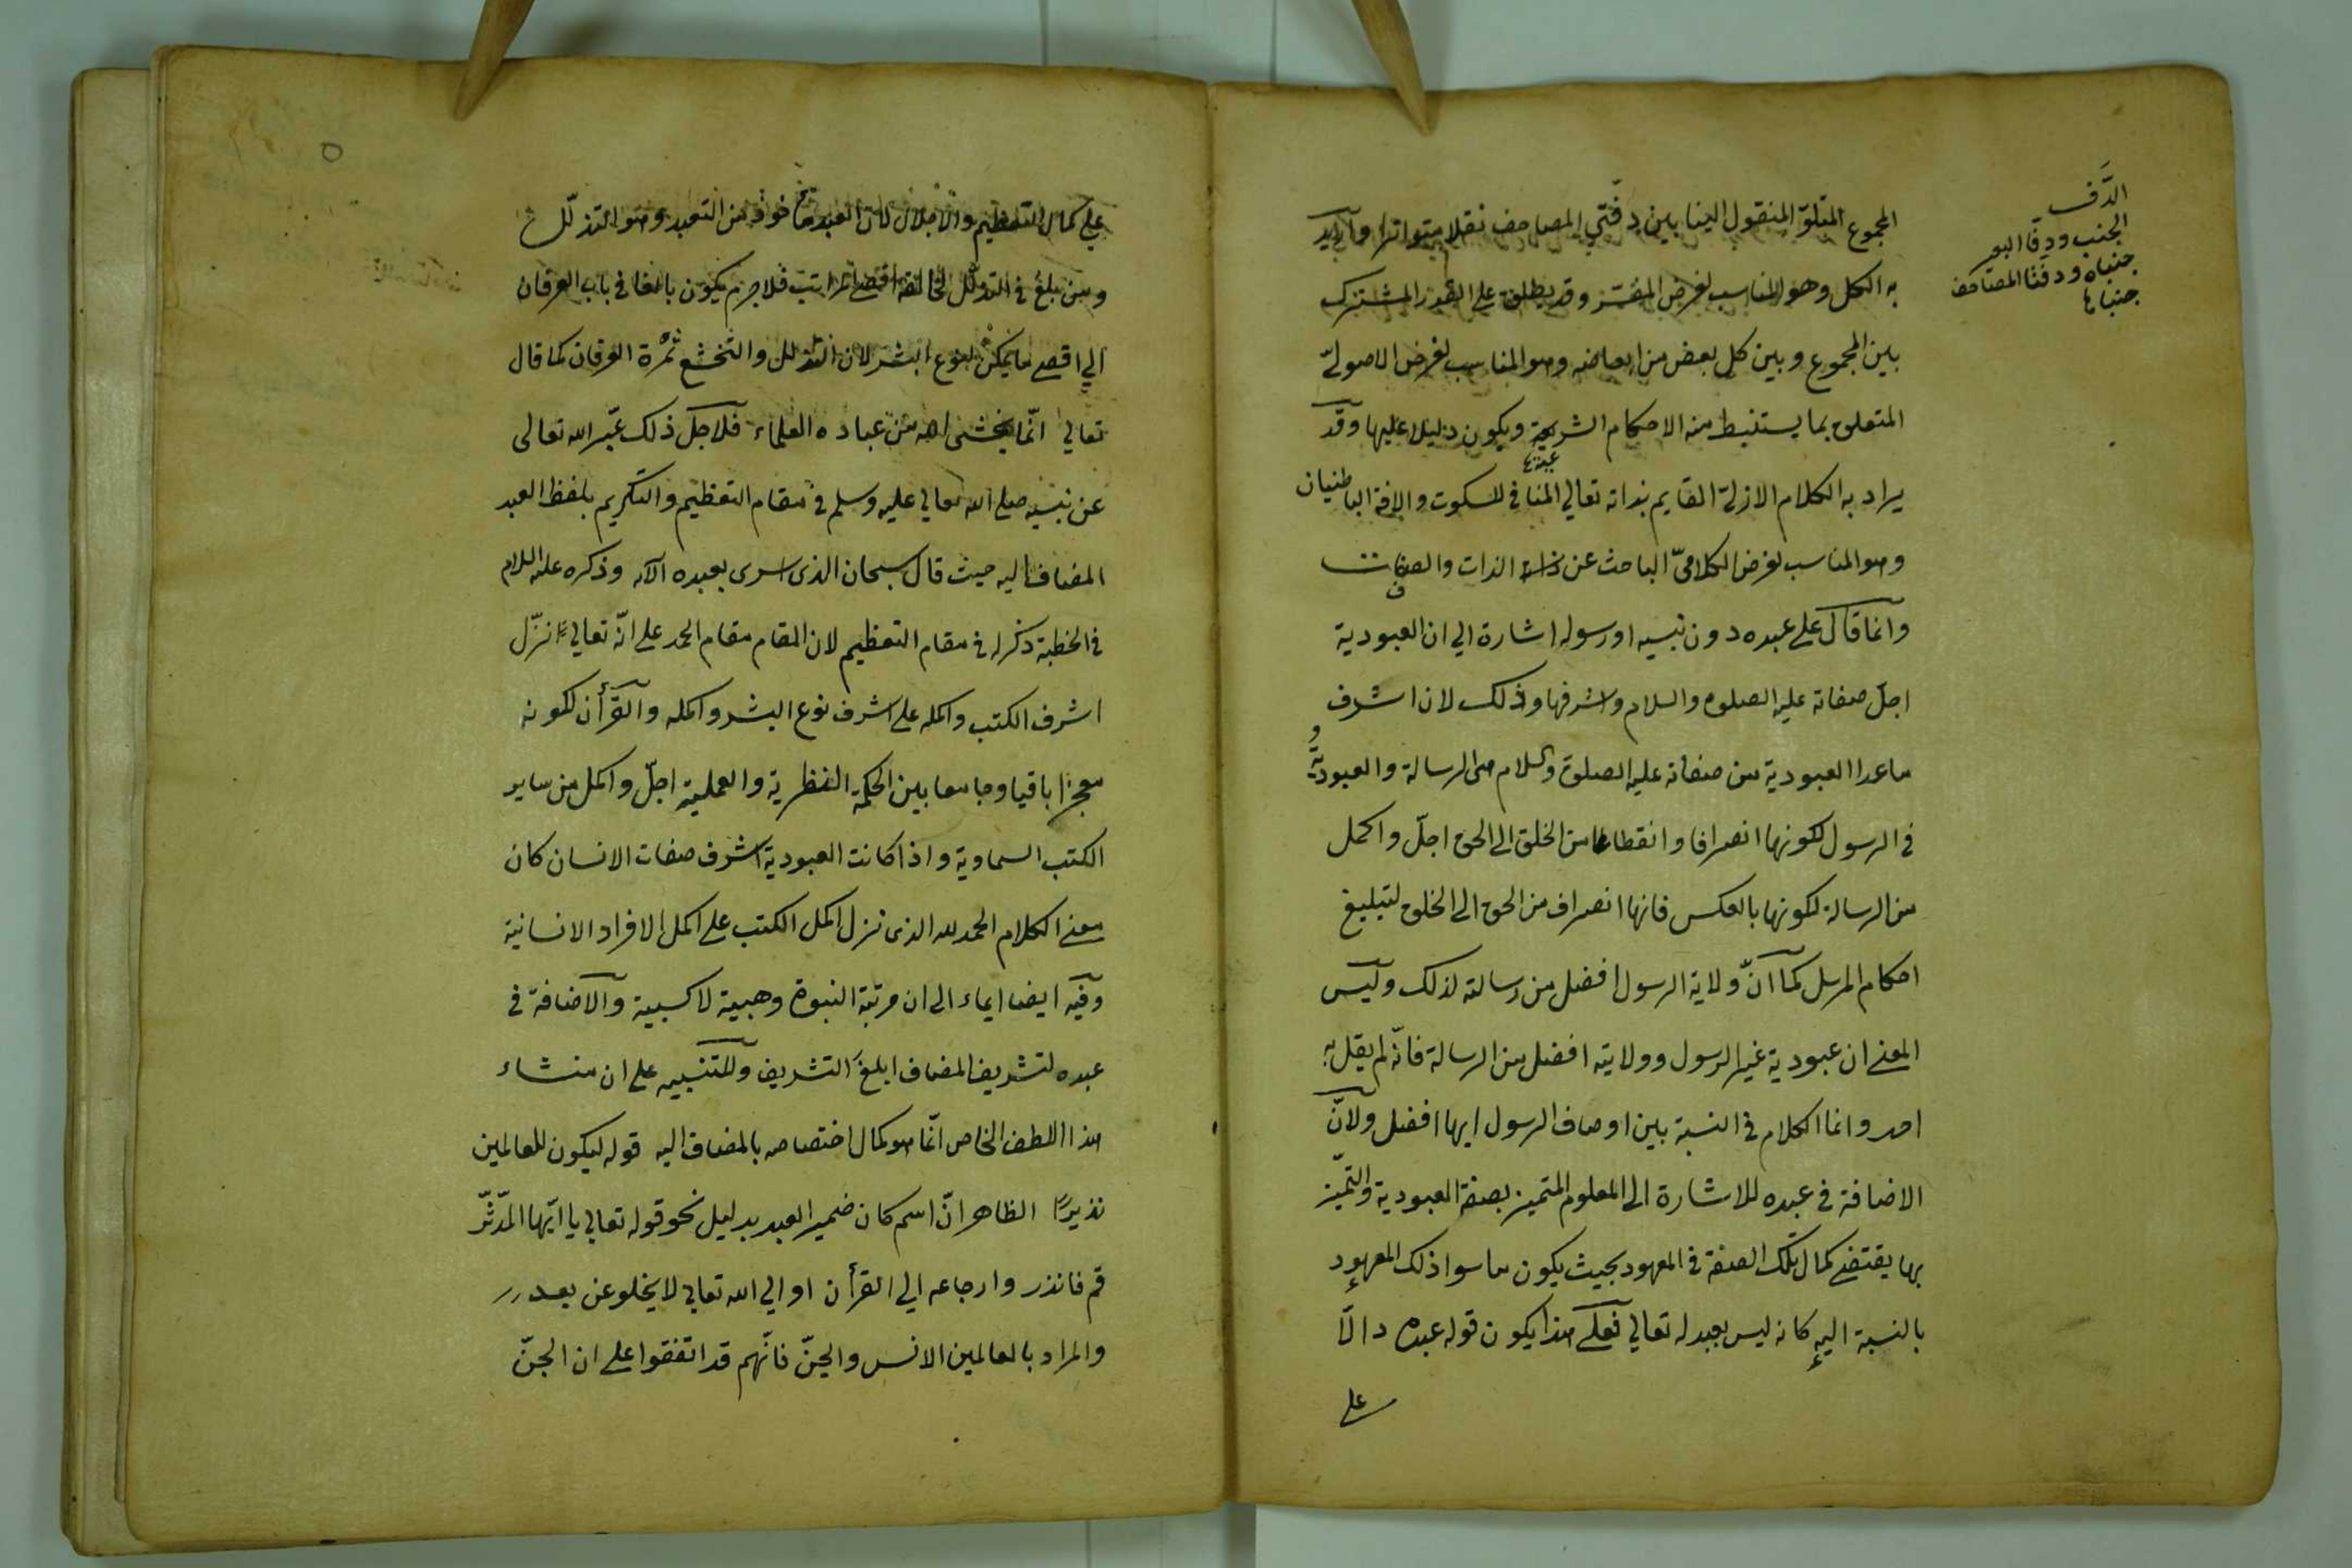 المجموع المتلوّ المنقول الينا بين دفتي المصاحف نقلا متواترا واريد
به الكل وهو المناسب لغرض المفسّر وقد يطلق على القدر المشترك
بين المجموع وبين كل بعض من ابعاضه وهو المناسب لغرض الاصوليّ
المتعلق بما يستنبط منه الاحكام الشرعية ويكون دليلا عليها وقد
يراد به الكلام الازلي القايم بذاته تعالي المنافي للسكوت والافة الباطنيان
وهو المناسب لغرض الكلاميّ الباحث عن الذات والصفات
وانما قال على عبده دون نبيه او رسوله اشارة الي ان العبودية
اجلّ صفاته عليه الصلوة والسلام واشرفها وذلك لان اشرف
ما عدا العبودية من صفاته عليه الصلوة والسلام هى الرسالة والعبودية
في الرسول لكونها انصرافا وانقطاعا من الخلق الى الحق اجلّ واكمل
من الرسالة لكونها بالعكس فانها انصراف من الحق الى الخلق لتبليغ
احكام المرسل كما انّ ولاية الرسول افضل من رسالته لذلك وليس
المعنى ان عبودية غير الرسول وولايته افضل من الرسالة فانّه لم يقل به
احد وانما الكلام في النسبة بين اوصاف الرسول ايها افضل ولانّ
الاضافة في عبده للاشارة الى المعلوم المتميز بصفة العبودية والتميّز
بها يقتضي كمال تلك الصفة في المعهود بحيث يكون ما سوا ذلك المعهود
بالنسبة اليه كانه ليس بعبد له تعالي فعلى هذا يكون قوله عبده دالّا
على
الدَّف
الجنب ودفا البعير
جنباه ودفتا المصاحف
جنباها
٥
على كمال التعظيم والاجلال لان العبد مأخوذ من التعبد وهو التذلّل
ومن بلغ في التذلّل لخالقه اقصى المراتب فلاجرم يكون بالغا في باب العرفان
الي اقصى ما يمكن لنوع البشر لان التذلل والتخشع ثمرة العرفان كما قال
تعالي انّما يخشى الله من عباده العلماء فلاجل ذلك عبّر الله تعالى
عن نبيه صلى الله تعالي عليه وسلم في مقام التعظيم والتكريم بلفظ العبد
المضاف اليه حيث قال سبحان الذى اسرى بعبده الآية وذكره عليه السلام
في الخطبة ذكر له في مقام التعظيم لان المقام مقام الحمد على انّه تعالي انزّل
اشرف الكتب واكمله على اشرف نوع البشر واكمله والقرأن لكونه
معجزا باقيا وجامعا بين الحكمة النظرية والعملية اجلّ واكمل من ساير
الكتب السماوية واذا كانت العبودية اشرف صفات الانسان كان
معنى الكلام الحمد لله الذى نزل اكمل الكتب على اكمل الافراد الانسانية
وفيه ايضا ايماء الى ان مرتبة النبوة وهبية لا كسبية والاضافة في
عبده لتشريف المضاف ابلغ التشريف وللتنبيه على ان منشاء
هذا اللطف الخاص انّما هو كمال اختصاصه بالمضاف اليه قوله ليكون للعالمين
نذيرًا الظاهر انّ اسم كان ضمير العبد بدليل نحو قوله تعالي يا ايّها المدّثّر
قم فانذر وارجاعه الي القرأن او الي الله تعالي لا يخلو عن بعد
والمراد بالعالمين الانس والجنّ فانّهم قد اتفقوا على ان الجنّ